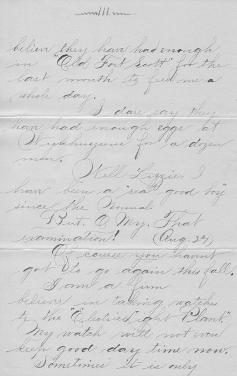 believe they have had enough
in "Old Fort Scott" for the
last month to feed me a
whole day.
I dare say they
have had enough eggs at
for a dozen
men.
Well Lizzie I
have been a "real good boy"
since the Normal
But. O My. That
examination! (Aug. 24)
Of course you havnt
got to go again this fall.
I am a firm
believer in taking watches
to the "Electric Light Plant."
My watch will not even
keep good day time now.
Sometimes it is only